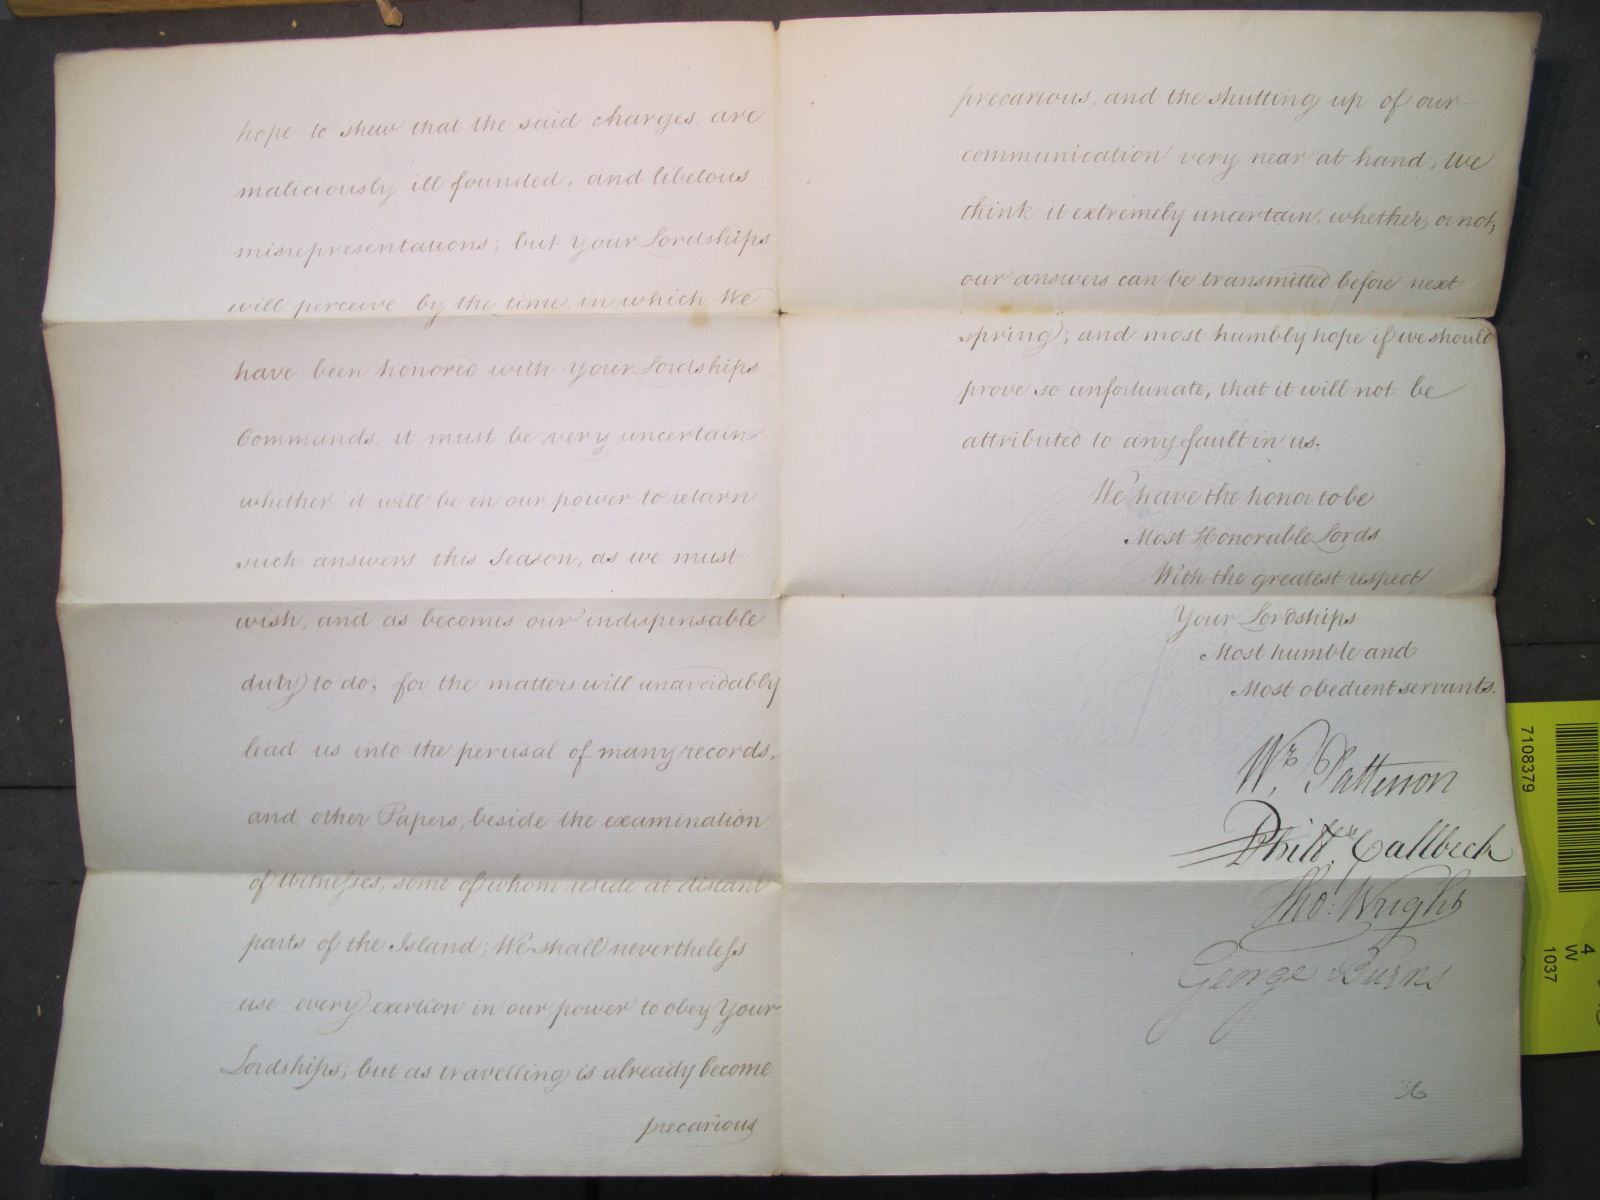 hope to shew that the said charges, are
maliciously ill founded, and libelous
misrepresentations; but Your Lordships
will perceive by the time in which We
have been honored with Your Lordships
Commands, it must be very uncertain
whether it will be in our power to return
such answers this Season, as we must
wish, and as becomes our indispensable
duty to do; for the matters will unavoidably
lead us into the perusal of many records,
and other Papers, beside the examination
of Witnesses, some of whom reside at distant
parts of the Island; We shall nevertheless
use every exertion in our power to obey Your
Lordships; but as travelling is already become
precarious
precarious, and the shutting up of our
communication very near at hand, We
think it extremely uncertain, whether, or not,
our answers can be transmitted before next
spring; and most humbly hope if we should
prove so unfortunate, that it will not be
attributed to any fault in us.
We have the honor to be
Most Honorable Lords
With the greatest respect
Your Lordships
Most humble and
Most obedient servants.
Wm. Patterson
Phill. Callbeck
Tho: Wright
George Burns
7108379
4
W
1037